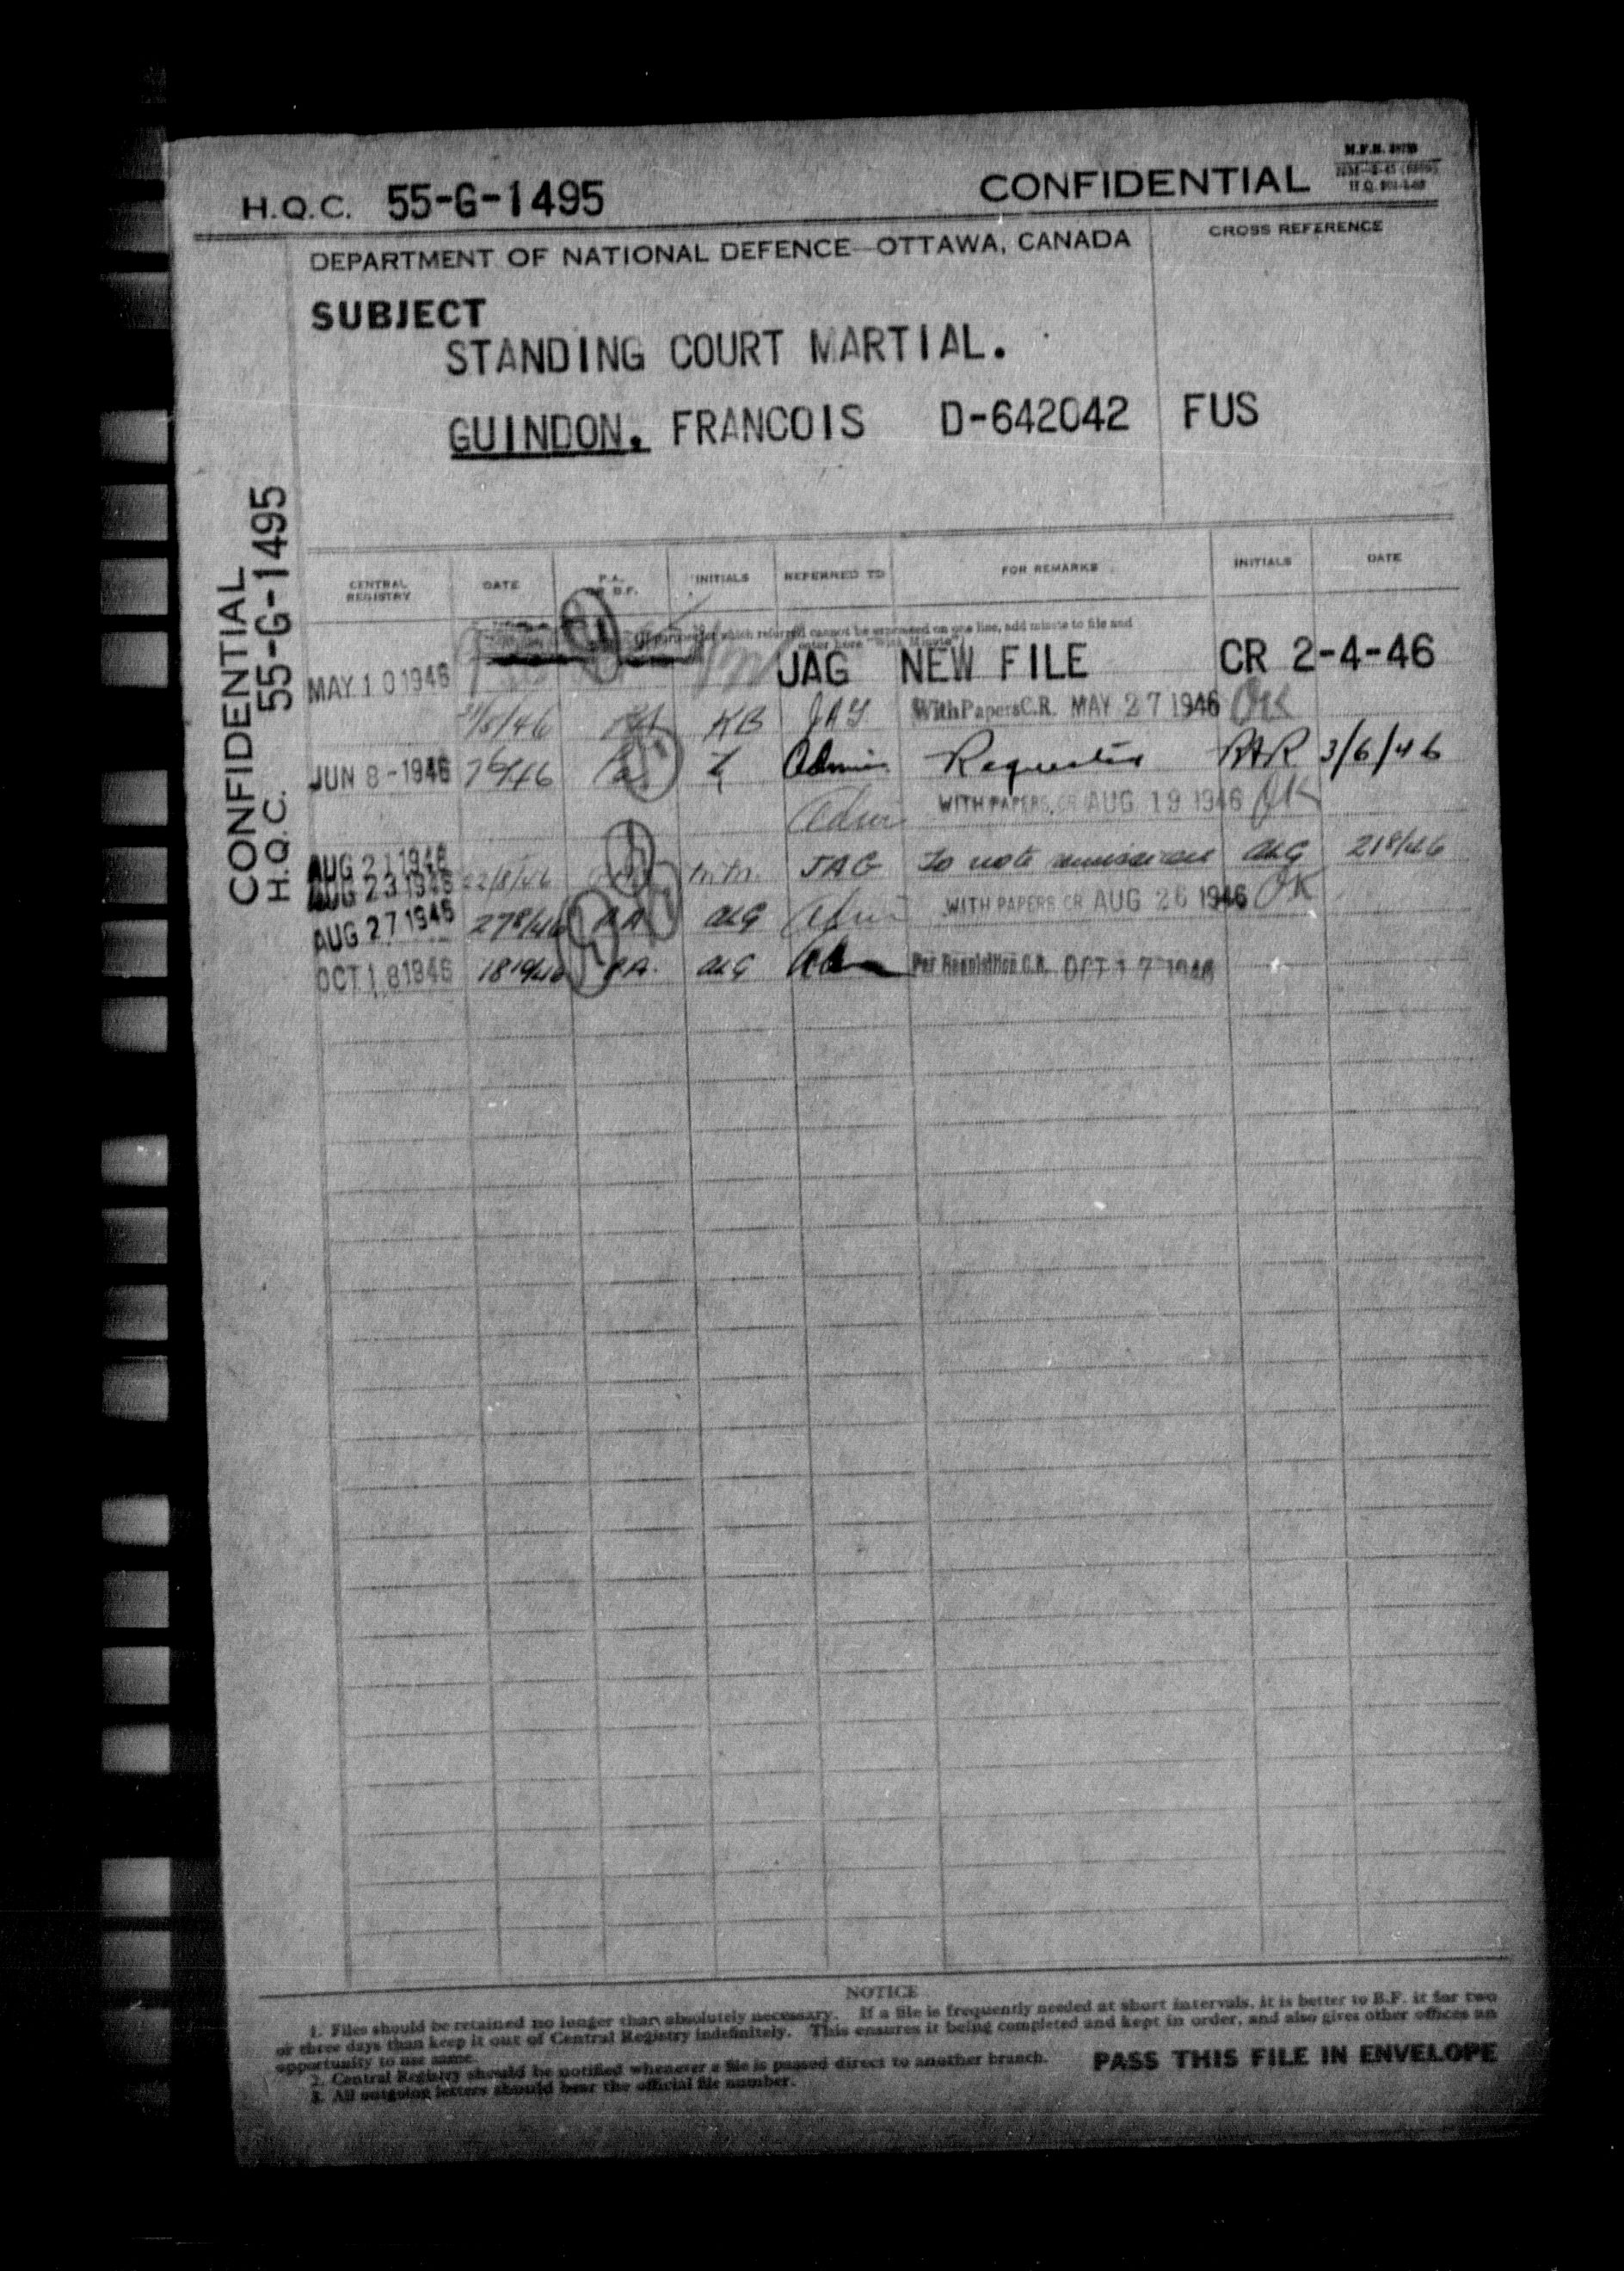 H.Q.C. 55-G-1495 CONFIDENTIAL
DEPARTMENT OF NATIONAL DEFENCE—OTTAWA, CANADA
CROSS REFERENCE
SUBJECT
STANDING COURT MARTIAL.
GUINDON, FRANCOIS D-642042 FUS
CONFIDENTIAL
H.Q.C. 55-G-1495
CENTRAL REGISTRY DATE P.A. OR B.F. INITIALS REFERRED TO FOR REMARKS INITIALS DATE
which referred cannot be expressed on one line, add minute to file and
enter here "With Minute"
MAY 10 1946 JAG NEW FILE CR 2-4-46
/5/46 KB JAG With Papers C.R. MAY 27 1946 OK
JUN 8-1946 7/6/46 Pa Admin Requisition RAR 3/6/46
Adm WITH PAPERS, CR AUG 19 1946 OK
AUG 21 1946
AUG 23 1946 22/8/46 m.m. JAG To note remission ALG 21/8/46
AUG 27 1946 27/8/46 P.A. ALG Adm WITH PAPERS CR AUG 26 1946 OK
OCT 18 1946 18/10/46 P.A. ALG Adm Per Requisition C.R. OCT 17 1946
NOTICE
1. Files should be retained no longer than absolutely necessary. If a file is frequently needed at short intervals, it is better to B.F. it for two
or three days than keep it out of Central Registry indefinitely. This ensures it being completed and kept in order, and also gives other offices an
opportunity to use same.
2. Central Registry should be notified whenever a file is passed direct to another branch.
3. All outgoing letters should bear the official file number.
PASS THIS FILE IN ENVELOPE